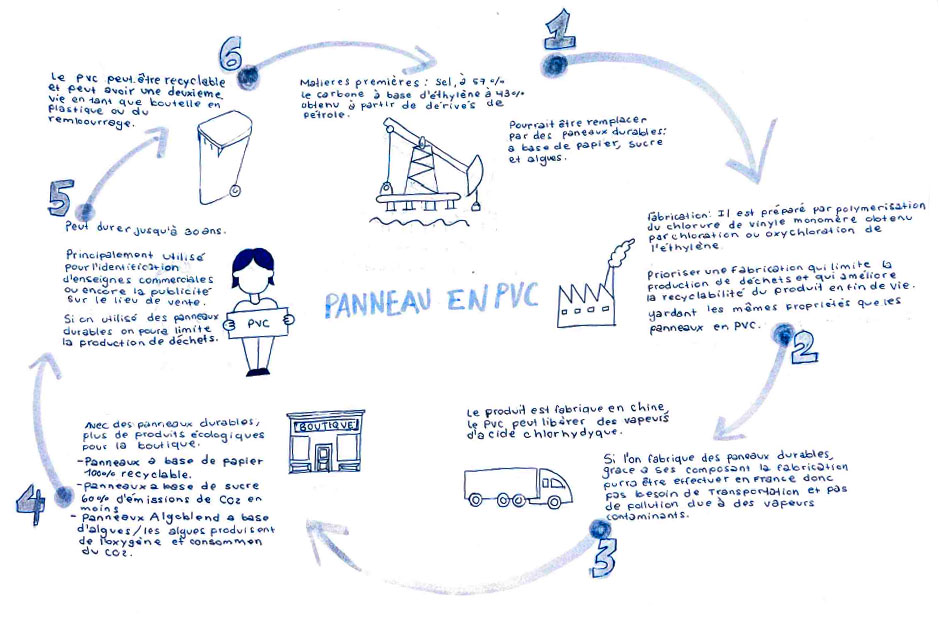 1
Matieres premières : Sel, à 57 %
le carbone à base d'éthylène à 43%
obtenu à partir de dérivés de
pétrole.
Pourrait être remplacer
par des paneaux durables:
a base de papier, sucre
et algues.
fabrication: Il est préparé par polymerisation
du chlorure de vinyle monomère obtenu
par chloration ou oxychloration de
l'éthylène.
Prioriser une fabrication qui limite la
production de déchets et qui améliore
la recyclabilité du produit en fin de vie.
gardant les mêmes propriétés que les
panneaux en PVC.
2
Le produit est fabrique en chine,
le PVC peut libérer des vapeurs
d'acide chlorhydyque.
Si l'on fabrique des paneaux durables,
grace a ses composant la fabrication
purra être effectuer en France donc
pas besoin de Transportation et pas
de pollution due à des vapeurs
contaminants.
3
BOUTIQUE
Avec des panneaux durables,
plus de produits écologiques
pour la boutique.
-Panneaux a base de papier
100% recyclable.
-panneaux a base de sucre
60% d'émissions de CO2 en
moins
- Panneaux Algoblend a base
d'algues/les algues produisent
de l'oxygène et consommen
du CO2.
4
Peut durer jusqu'à 30 ans.
Principalement utilisé
pour l'identification
d'enseignes commerciales
ou encore la publicité
sur le lieu de vente.
Si on utilisé des panneaux
durables on poura limité
la production de déchets.
PVC
5
Le PVC peut être recyclable
et peut avoir une deuxième
vie en tant que bouteille en
plastique ou du
rembourrage.
6
PANNEAU EN PVC